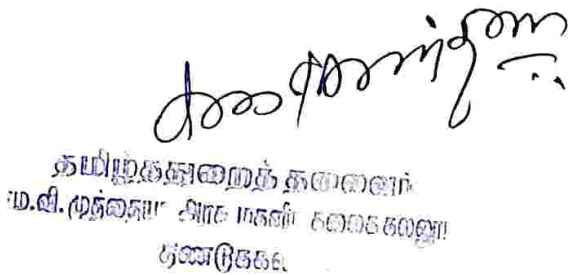 தமிழ்த்துறைத் தலைவர்
ம.வி.முத்தையா அரசு மகளிர் கலைக்கல்லூரி
திண்டுக்கல்